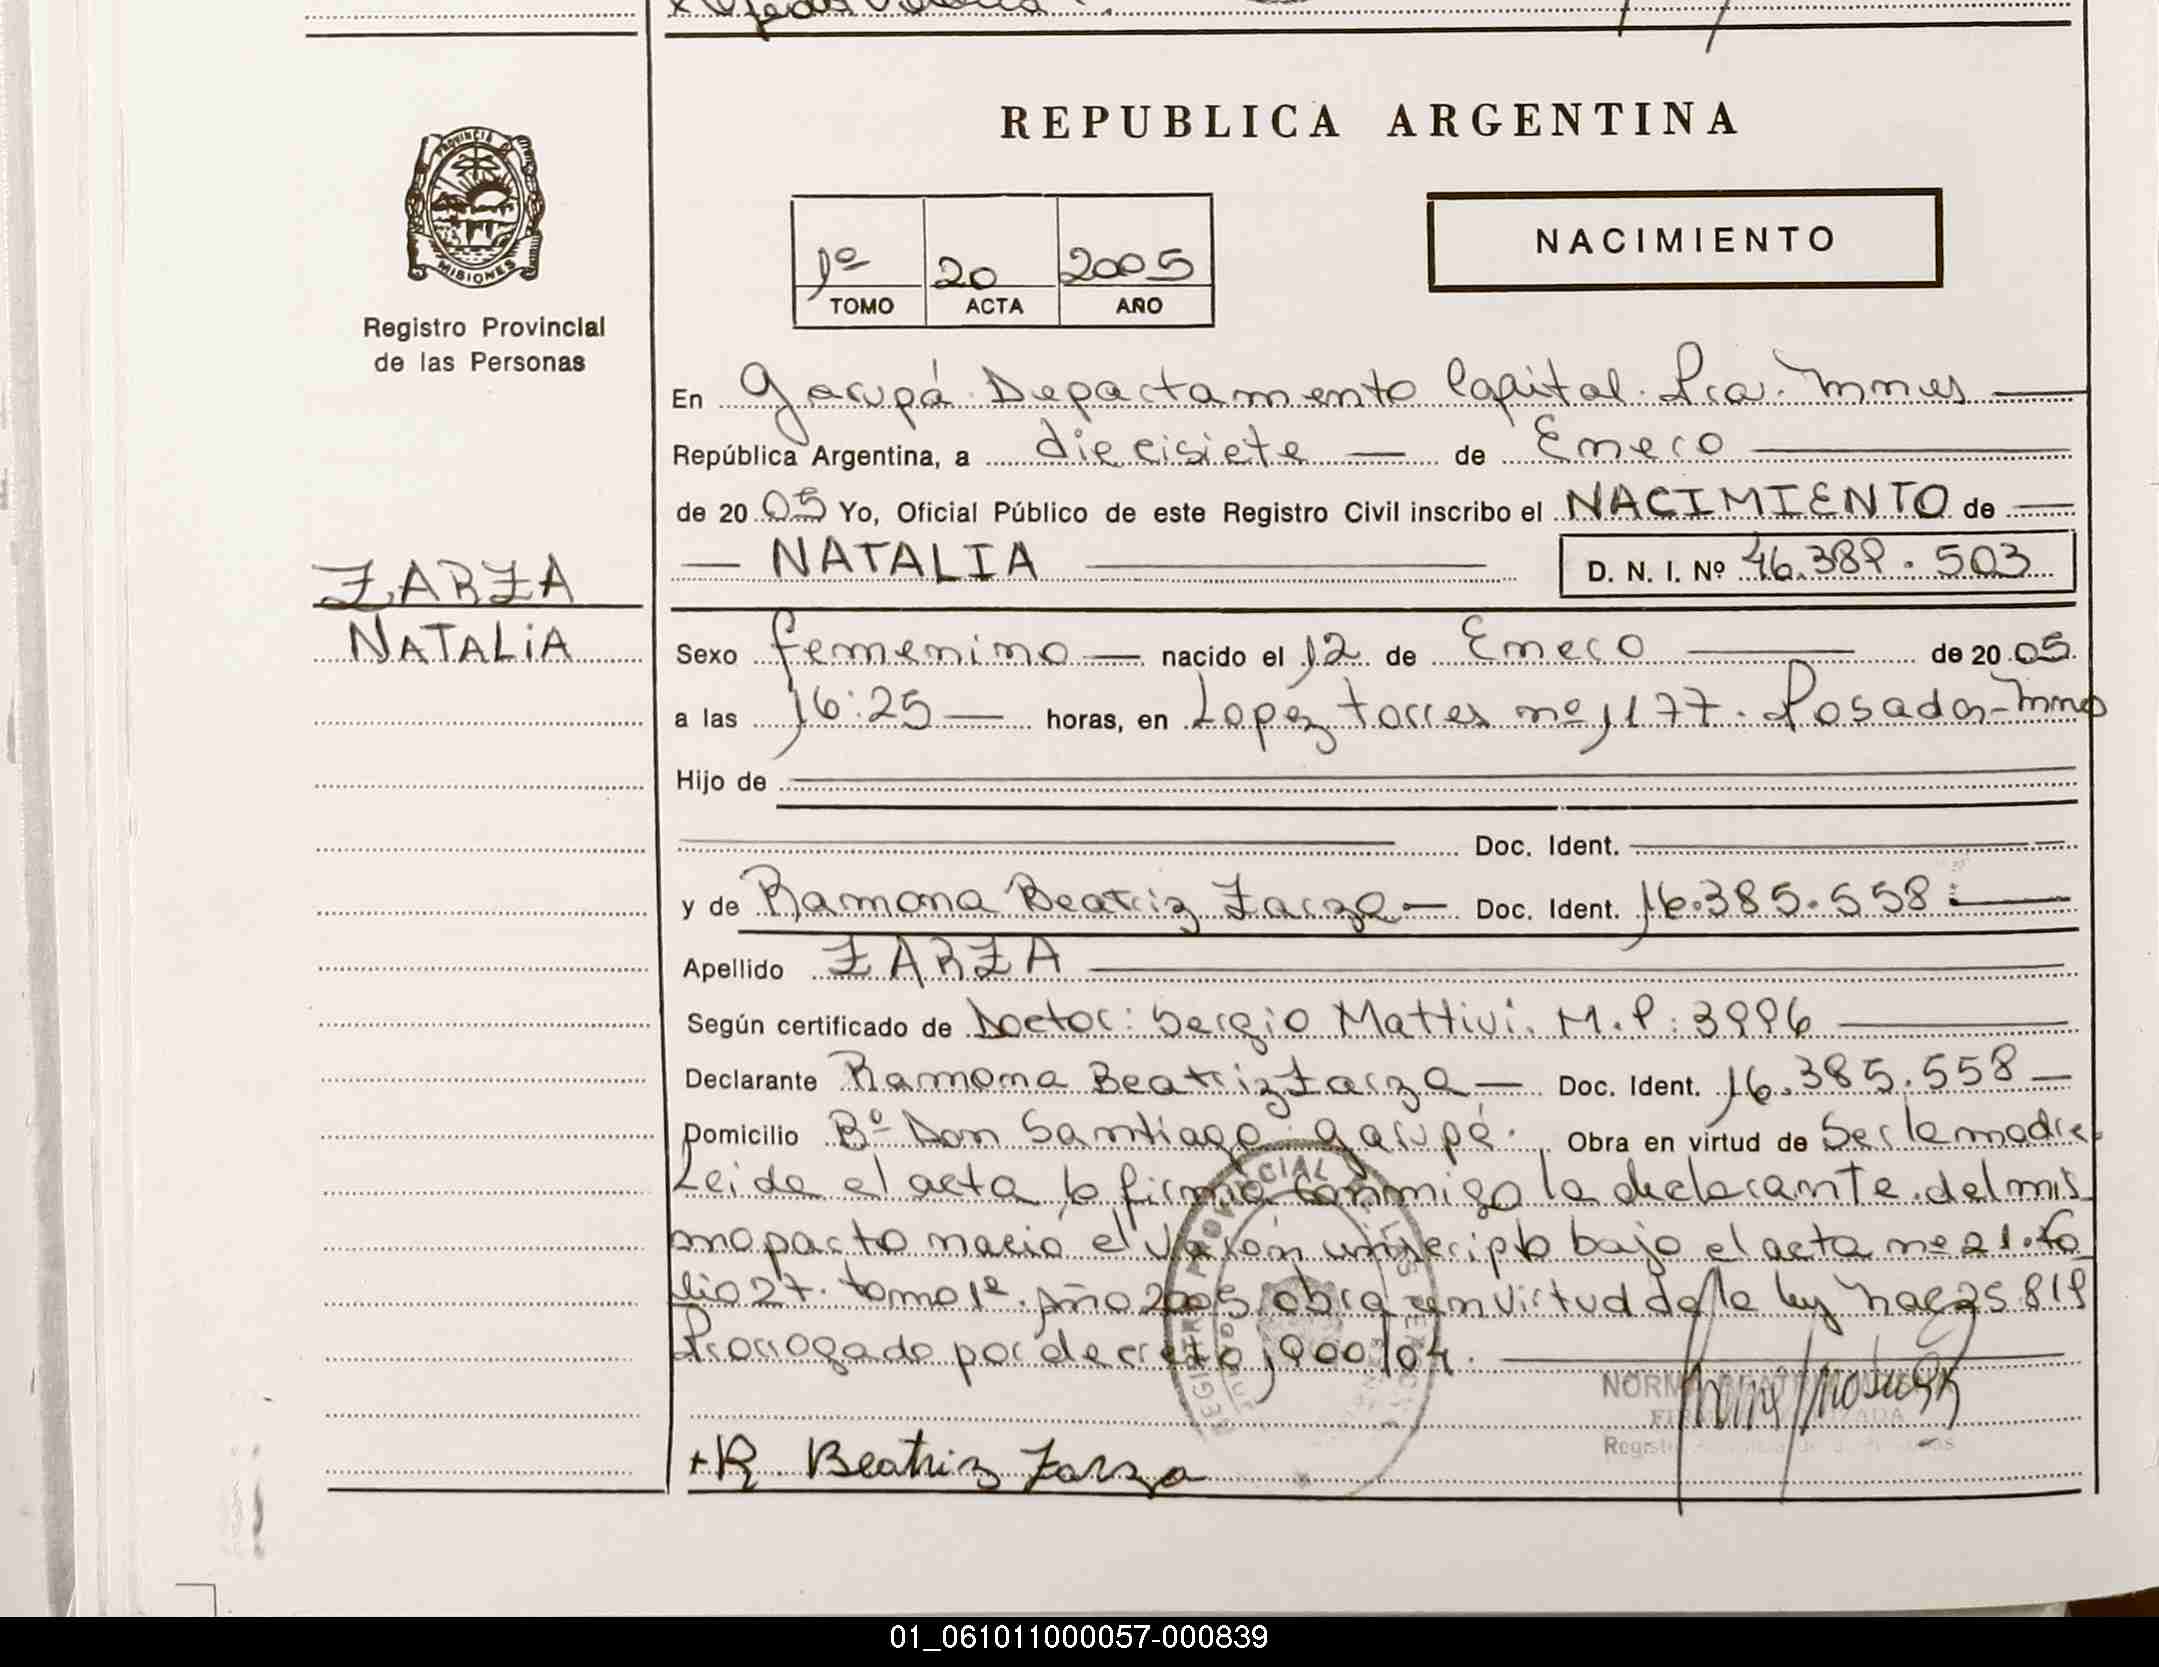 PROVINCIA DE
MISIONES
Registro Provincial
de las Personas
REPUBLICA ARGENTINA
1º 20 2005
TOMO ACTA AÑO
NACIMIENTO
En Garupá Departamento Capital. Pcia. Mnes
República Argentina, a diecisiete de Enero
de 2005 Yo, Oficial Público de este Registro Civil inscribo el NACIMIENTO de
NATALIA D. N. I. Nº 46.389.503
ZARZA
NATALIA
Sexo femenino nacido el 12 de Enero de 2005
a las 16:25 horas, en Lopez torres nº 1177. Posadas-Mnes
Hijo de
Doc. Ident.
y de Ramona Beatriz Zarza Doc. Ident. 16.385.558
Apellido ZARZA
Según certificado de Doctor: Sergio Mattivi. M.P: 3996
Declarante Ramona Beatriz Zarza Doc. Ident. 16.385.558
Domicilio Bº Don Santiago Garupá. Obra en virtud de Ser la madre.
Leida el acta la firma conmigo la declarante. del mis
mo parto nació el varón inscripto bajo el acta nº 21. fo
lio 27. tomo 1º. Año 2005. obra en virtud de la ley 25819
Prorrogado por decreto 1900/04.
+R. Beatriz Zarza
01_061011000057-000839